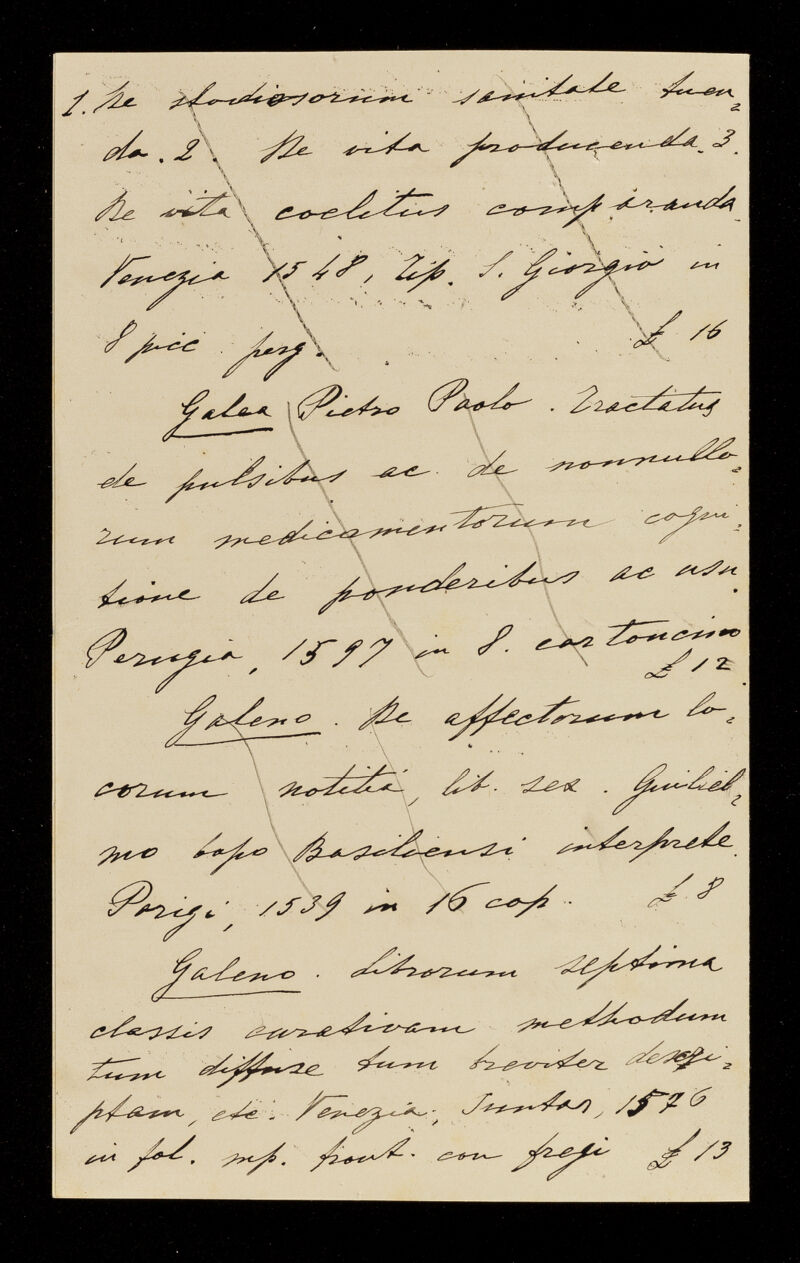 1. De studiosorum sanitate tuen=
da. 2. De vita producenda. 3.
De vita coelitus comparanda
Venezia 1548, Tip. S. Giorgio in
8 picc perg. £ 16
Galea Pietro Paolo. Tractatus
de pulsibus ac de nonnullo=
rum medicamentorum cogni=
tione de ponderibus ac usu.
Perugia, 1597 in 8. cartoncino
£ 12.
Galeno. De affectorum lo=
corum notitia, lib. sex. Guiliel=
mo bapo Basiliensi interprete.
Parigi, 1539 in 16 cop. £ 8
Galeno. Librorum septima
classis curativam methodum
tum diffuse tum breviter descri=
ptam, etc. Venezia, Juntas, 1576
in fol. mp. front. con fregi £ 13